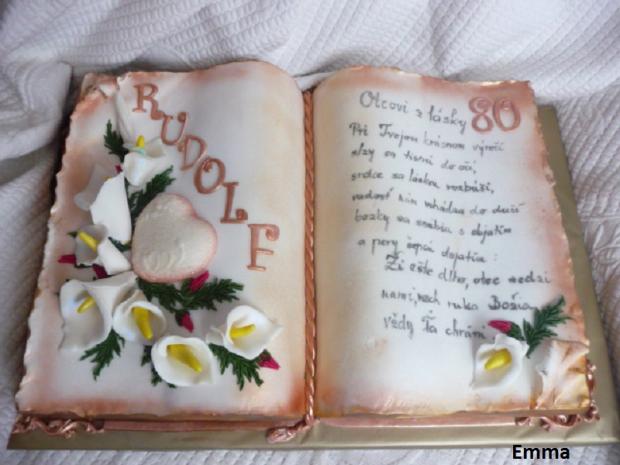 RUDOLF
Otcovi z lásky 80
Pri Tvojom krásnom výročí
slzy sa tisnú do očí,
srdce sa láskou rozbúši,
radosť nám vchádza do duší
bozky sa snúbia s objatím
a pery šepcú dojatím:
Ži ešte dlho, otec medzi
nami, nech ruka Božia
vždy Ťa chráni
Emma